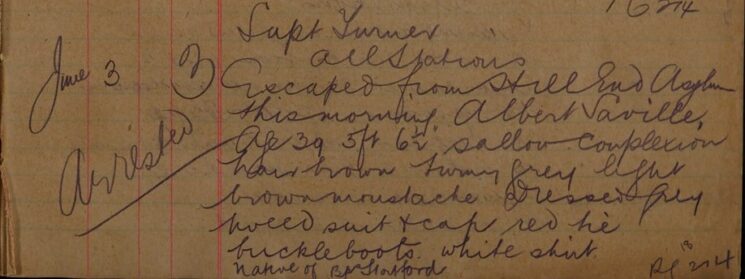 Supt Turner
All Stations
June 3
Escaped from Hill End Asylum
this morning Albert Saville,
Arrested
Age 39 5ft 6½" sallow complexion
hair brown turning grey light
brown moustache Dressed grey
tweed suit & cap red tie
buckle boots. white shirt
Native of Bps Stortford